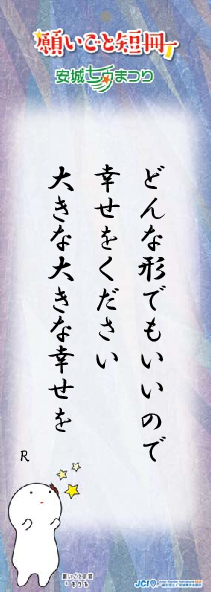 願いごと短冊
安城七夕まつり
どんな形でもいいので
幸せをください
大きな大きな幸せを
R
願いごと短冊
JCI